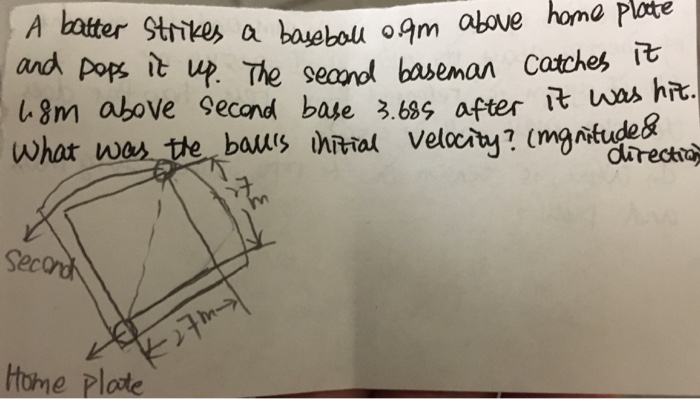 A batter Strikes a baseball 0.9m above home plate
and pops it up. The second baseman Catches it
1.8m above Second base 3.68s after it was hit.
What was the ball's initial velocity? (mgnitude&
direction)
27m
Second
27m
Home plate